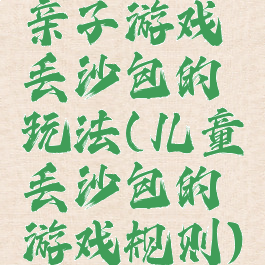 亲子游戏
丢沙包的
玩法(儿童
丢沙包的
游戏规则)